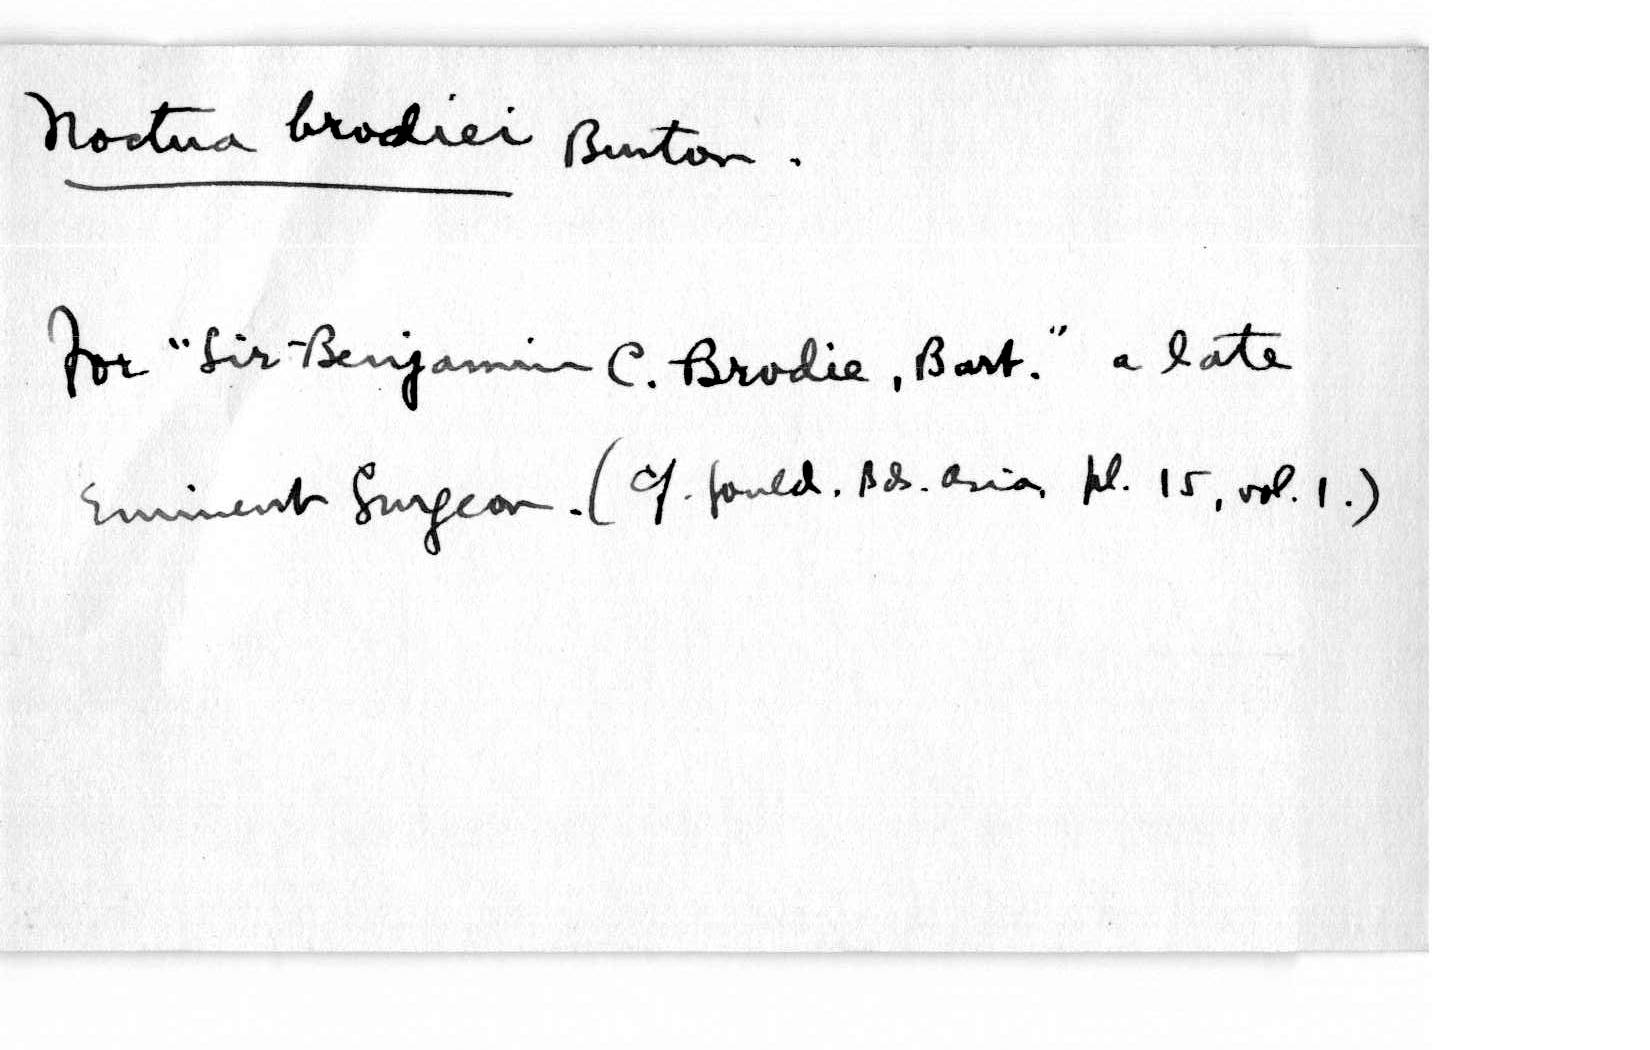 Noctua brodiei Burton.
For "Sir Benjamin C. Brodie, Bart." a late
Eminent Surgeon. (Cf. Gould. Bds. Asia, pl. 15, vol. 1.)